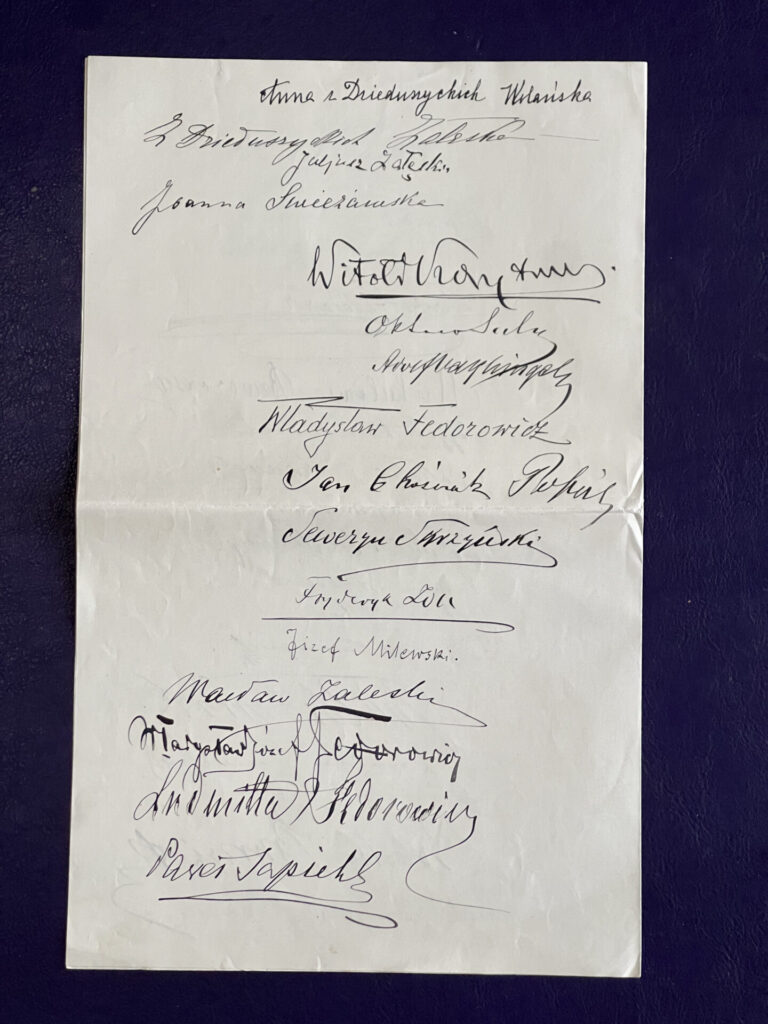 Anna z Dzieduszyckich Wolańska
Z Dzieduszyckich Zaleska
Juljusz Załęski
Joanna Świeżawska
Witold
Władysław Fedorowicz
Jan Chościak Popiel
Seweryn Skrzyński
Fryderyk Zoll
Józef Milewski.
Wacław Zaleski
Władysław Józef Fedorowicz
Ludmiłła Fedorowicz
Paweł Sapieha